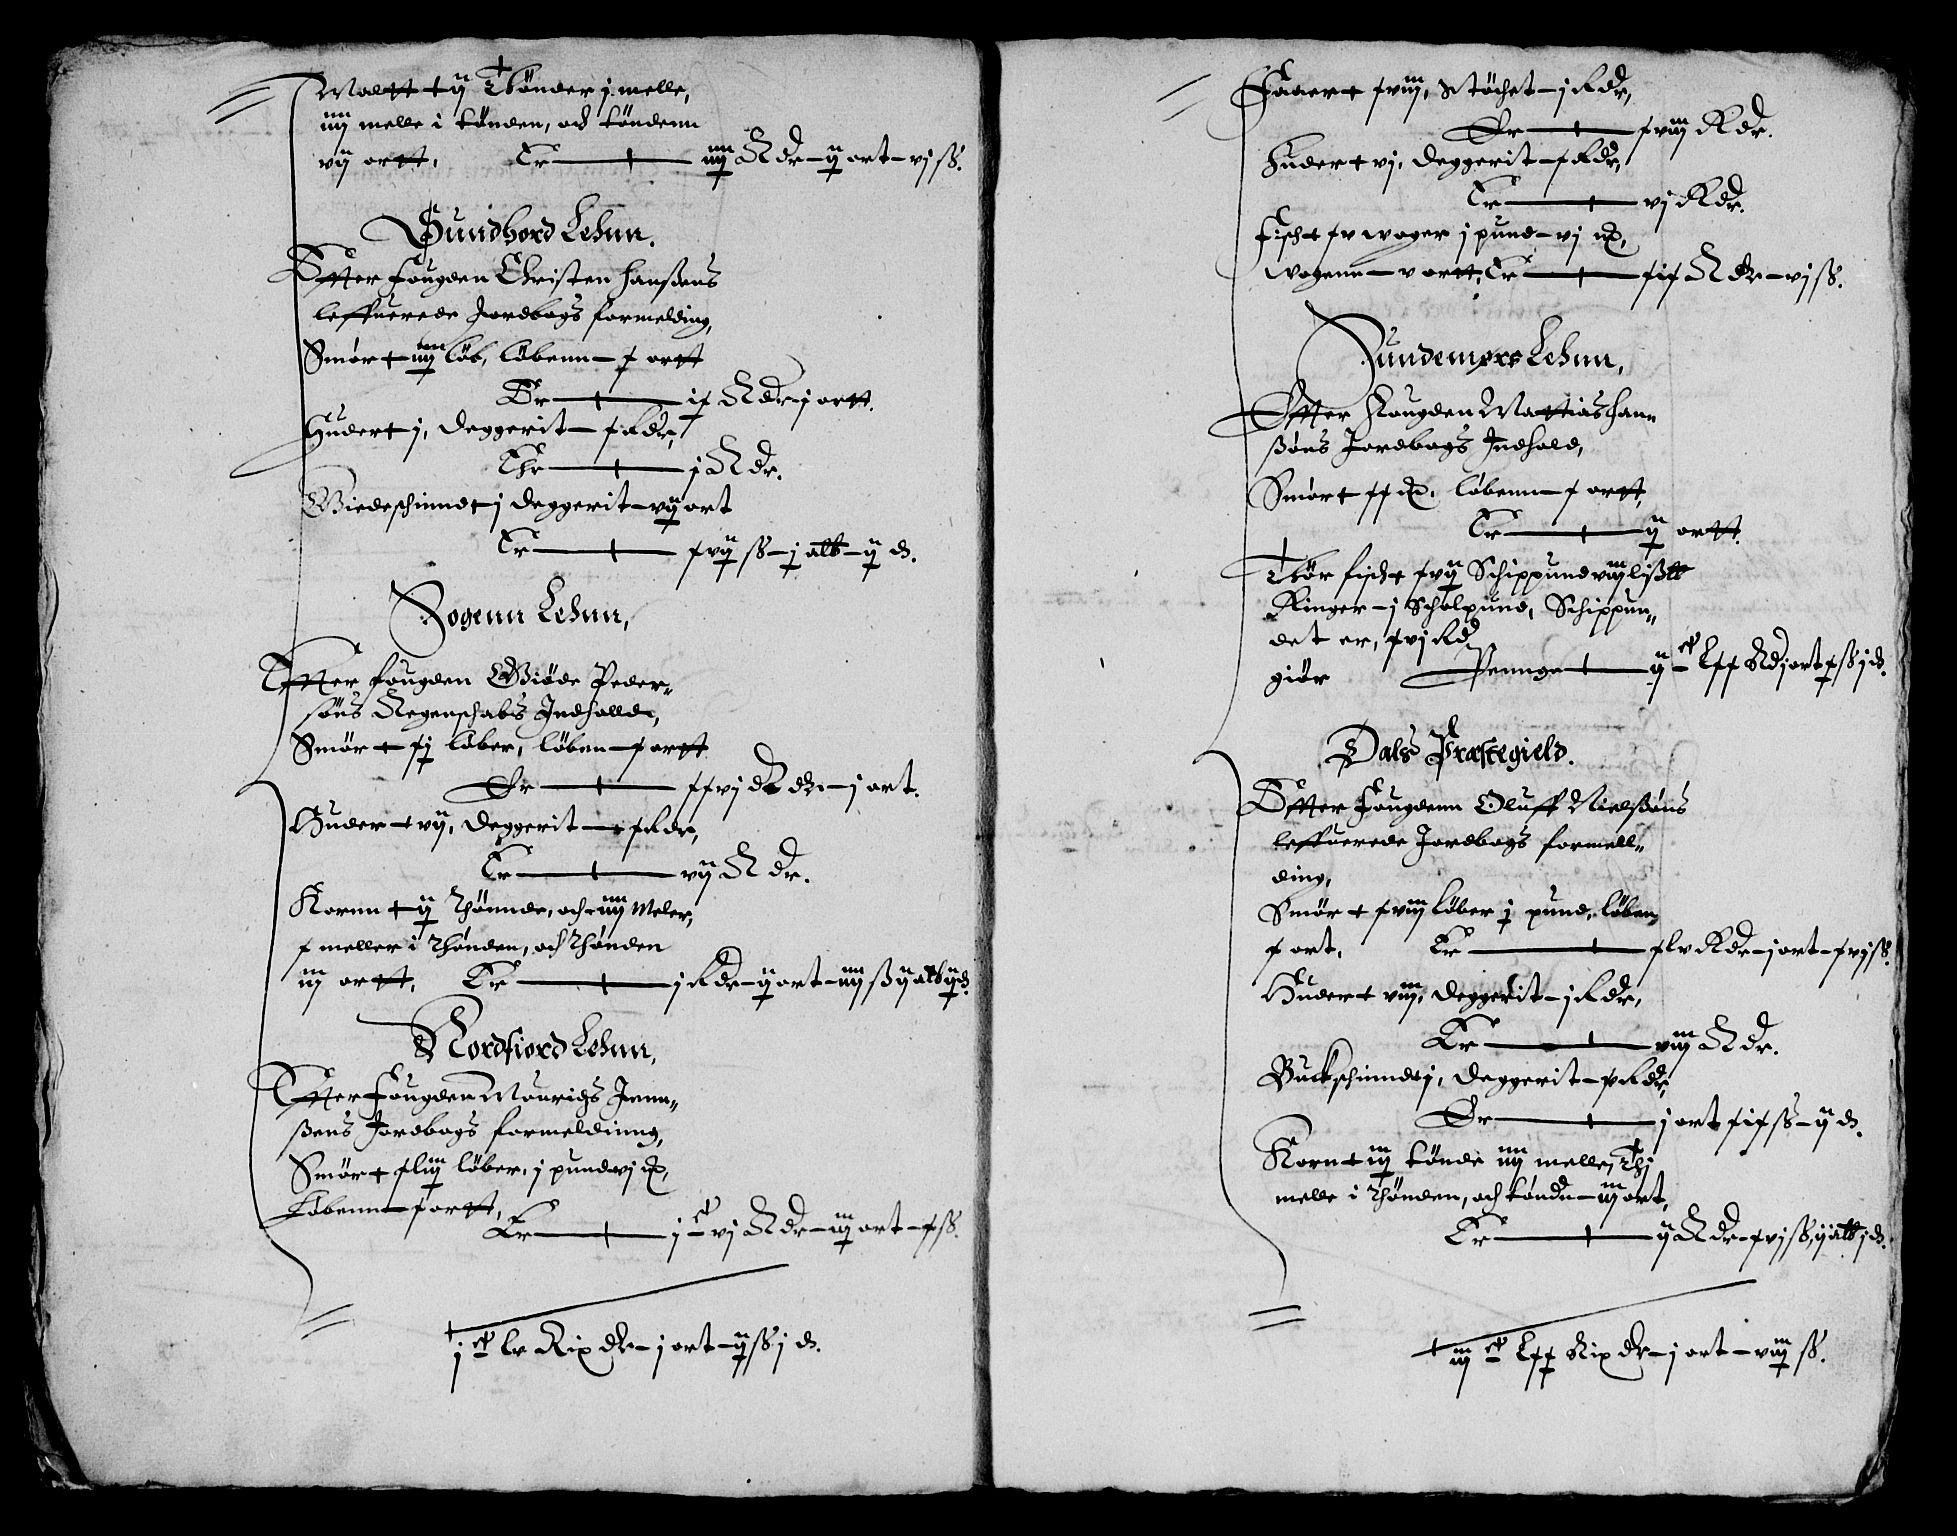 Maltt + ij Tønder j melle,
iiij melle i tønden, och tøndenn
vij ortt, Er iiij Rdr - ij ort - vj ß.
Sundhord Lehnn.
Effter fougden Christen Hanßens
leffuerede Jordbogs formelding,
Smør + iiij løb, løbenn - x ortt
Er ix Rdr - j ortt.
Huder + j, deggerit - x Rdr,
Er j Rdr.
Giedeschinnd + j deggerit - vij ort
Er xvij ß - j alb - ij d.
Sogenn Lehnn,
Effter fougden Giøde Peder-
søns Regenschabs Indholld,
Smør + xj løber, løben - x ortt
Er xxvj Rdr - j ort.
Huder + vij, deggerit - x Rdr,
Er vij Rdr.
Kornn + ij Thønnde, och iiij Meler,
x meller i Thønden, och Thønden
iij ortt, Er j Rdr - ij ort - iiij ß ij alb ij d.
Nordfiord Lehnn,
Effter Fougden Mouridz Jenn-
ßens Jordbogs formeldinng,
Smør + xliij løber, j pund vj
Løbenn - x ortt,
Er j vj Rdr - iij ort - x ß.
j lv Rix dr - j ort - ij ß j d.
Faaer + xviij, Støchet - j Rdr,
Er xviij Rdr.
Huder + vj, deggerit - x Rdr,
Er vj Rdr.
Fisch + xv woger j pund - vj
wogenn - v ortt, Er xix Rdr - vj ß.
Sundemørs Lehnn,
Effter Fougden Mattias Han-
ßøns Jordbogs Indhold,
Smør + xx løbenn - x ortt,
Er ij ortt.
Thør fisch + xvij Schippund viij liß℔
Ringer - j Scholpund, Schippun-
det er, xvj Rd
giør Penninge ij lxx Rd j ort x ß j d.
Dals Præstegield.
Effter Fougdenn Oluff Nielßøns
leffuerede Jordbogs formell-
ding,
Smør + xviij løber j pund, løben
x ort, Er xlv Rdr - j ort - xvj ß.
Huder + viij, deggerit - j Rdr,
Er viij Rdr.
Buckschinnd + j, deggerit - Rdr,
Er j ort xix ß - ij d.
Korn + iij tønde iiij melle,
melle i Thønden, och tønden - iij ort,
Er ij Rdr - xvj ß, ij alb j d.
iij lxx Rix dr - j ort - viij ß.